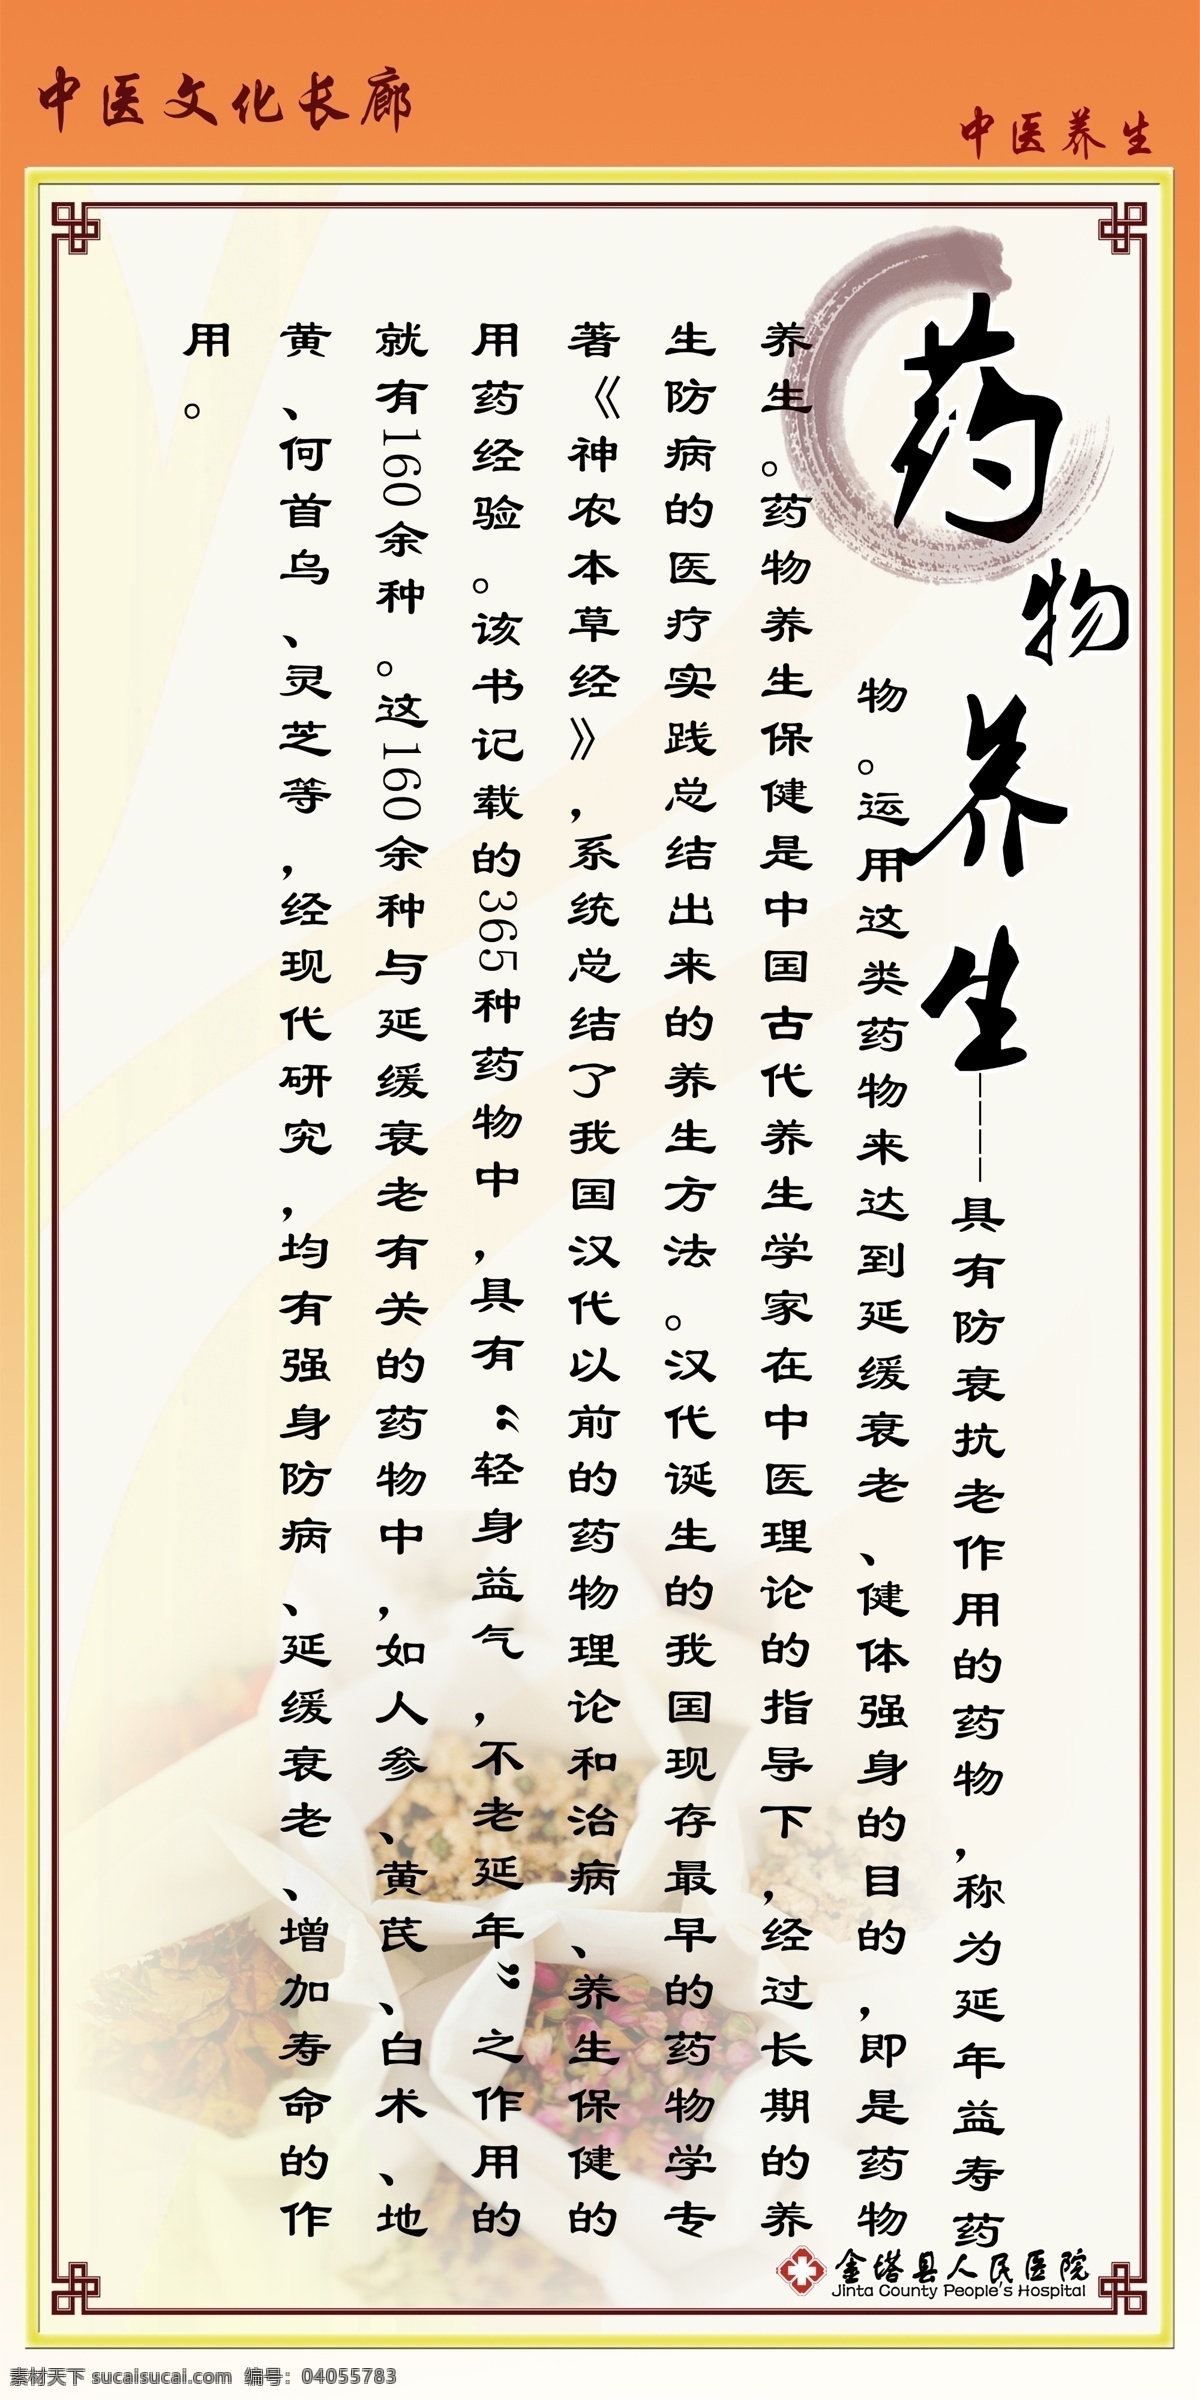 中医文化长廊
中医养生
药物养生
----具有防衰抗老作用的药物,称为延年益寿药
物。运用这类药物来达到延缓衰老、健体强身的目的,即是药物
养生。药物养生保健是中国古代养生学家在中医理论的指导下,经过长期的养
生防病的医疗实践总结出来的养生方法。汉代诞生的我国现存最早的药物学专
著《神农本草经》,系统总结了我国汉代以前的药物理论和治病、养生保健的
用药经验。该书记载的365种药物中,具有“轻身益气,不老延年”之作用的
就有160余种。这160余种与延缓衰老有关的药物中,如人参、黄芪、白术、地
黄、何首乌、灵芝等,经现代研究,均有强身防病、延缓衰老、增加寿命的作
用。
金塔县人民医院
Jinta County People's Hospital
素材天下 sucaisucai.com 编号：04055783